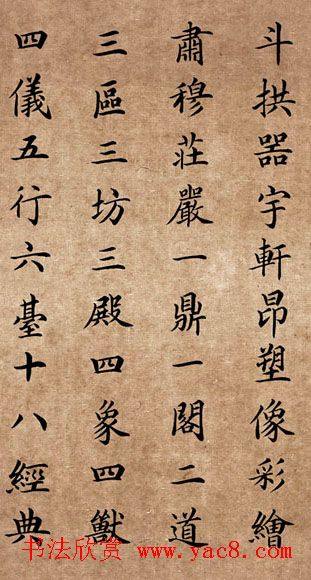 斗拱器宇軒昂塑像彩繪
肅穆莊嚴一鼎一閣二道
三區三坊三殿四象四獸
四儀五行六臺十八經典
书法欣赏 www.yac8.com